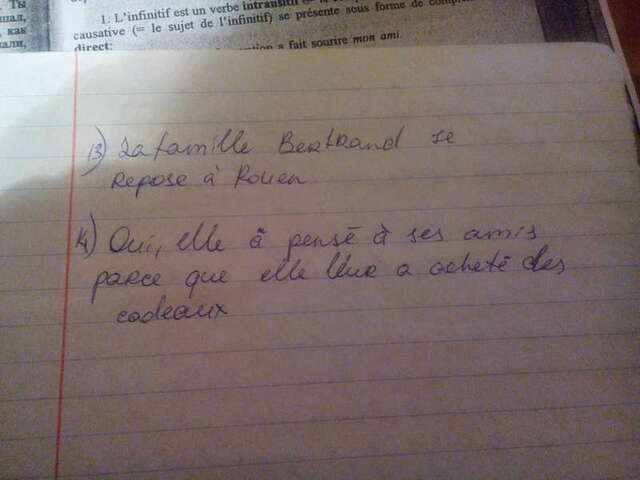 Ты
шал,
как
али,
1. L'infinitif est un verbe intransitif
causative (= le sujet de l'infinitif) se présente sous forme de
direct:
a fait sourire mon ami.
13) La famille Bertrand se
repose à Rouen
14) Oui, elle â pensé à ses amis
parce que elle leur a acheté des
cadeaux